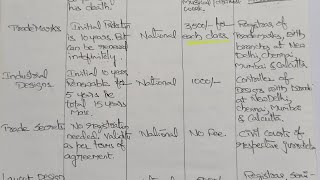 his death.
musical / dramatic
work.
Trade Marks
Initial Period
is 10 years. But
can be renewed
National
3500/- for
each class.
Registrar of
Trademarks, with
branches at New
Delhi, Chennai
Mumbai & Calcutta.
Industrial
Designs
Initial 10 years
Renewable for
5 years i.e
total 15 years
Max.
National
1000/-
Controller of
Designs with
at New Delhi,
Chennai, Mumbai
& Calcutta.
Trade Secrets
No registration
needed, validity
as per terms of
agreement.
National
No Fee.
Civil courts of
respective
Layout Design
Registrar